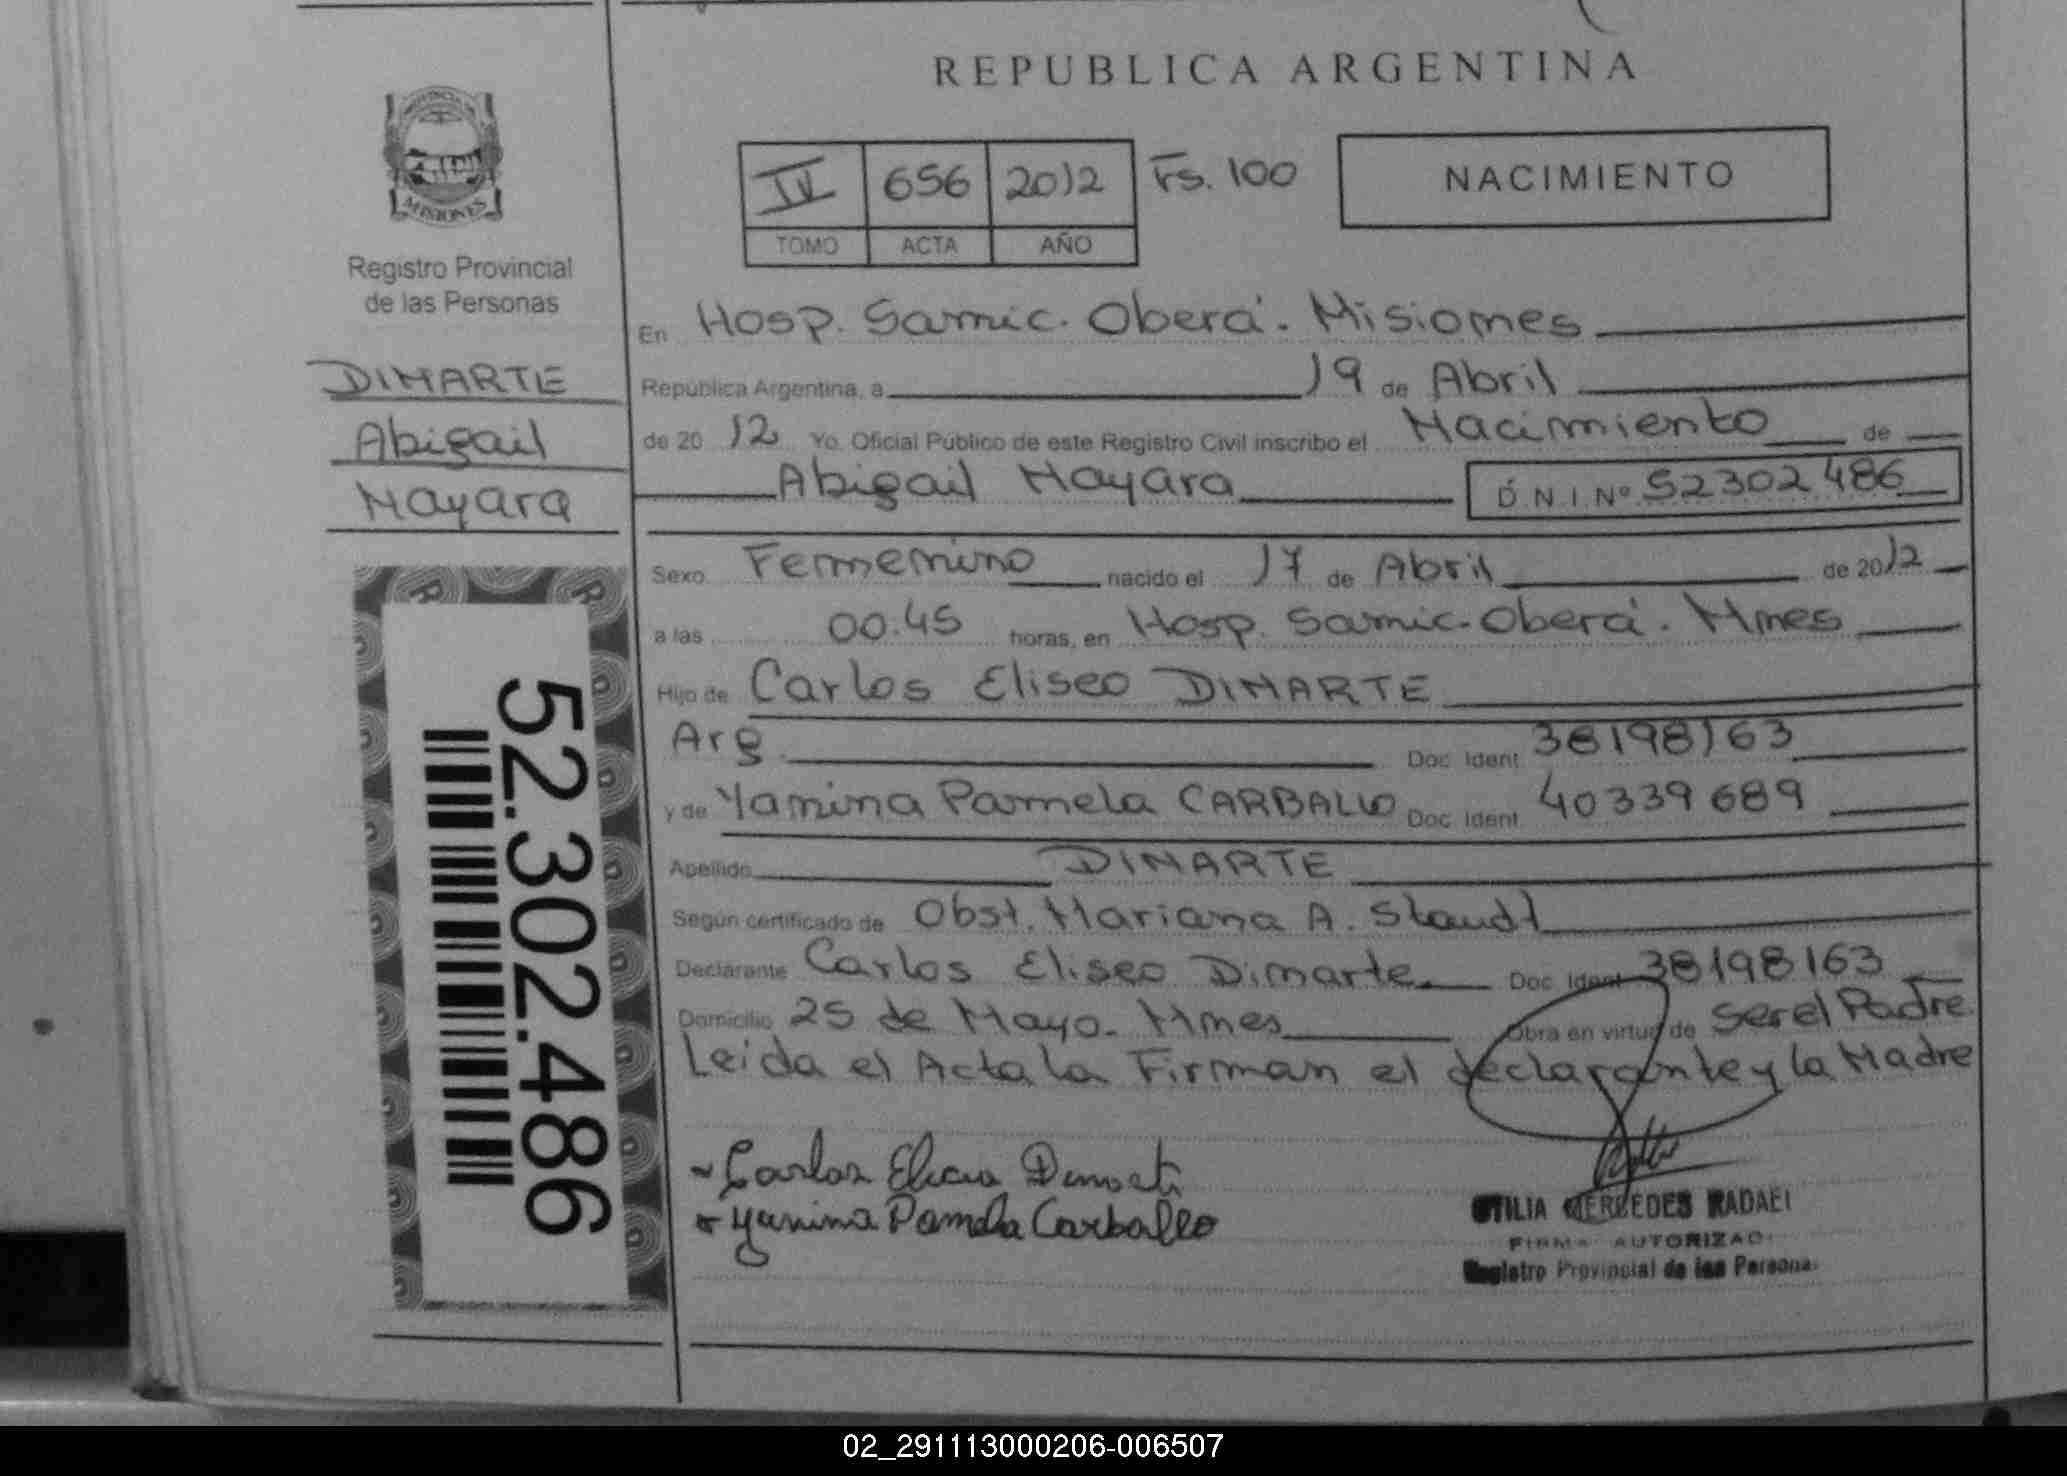 REPUBLICA ARGENTINA
PROVINCIA DE
MISIONES
Registro Provincial
de las Personas
DIMARTE
Abigail
Mayara
52.302.486
IV 656 2012 Fs. 100
TOMO ACTA AÑO
NACIMIENTO
En Hosp. Samic. Oberá. Misiones
República Argentina, a 19 de Abril
de 20 12 Yo. Oficial Público de este Registro Civil inscribo el Nacimiento de
Abigail Mayara D.N.I. Nº 52302486
Sexo Femenino nacido el 17 de Abril de 2012
a las 00.45 horas, en Hosp. Samic. Oberá. Mnes
Hijo de Carlos Eliseo DIMARTE
Arg Doc. Ident. 38198163
y de Yanina Pamela CARBALLO Doc. Ident. 40339689
Apellido DIMARTE
Según certificado de Obst. Mariana A. Staudt
Declarante Carlos Eliseo Dimarte Doc. Ident. 38198163
Domicilio 25 de Mayo. Mnes Obra en virtud de ser el Padre.
Leida el Acta la Firman el declarante y la Madre
Carlos
Yanina Pamela Carballo
OTILIA MERCEDES RADAEI
FIRMA AUTORIZAD
Registro Provincial de las Personas
02_291113000206-006507